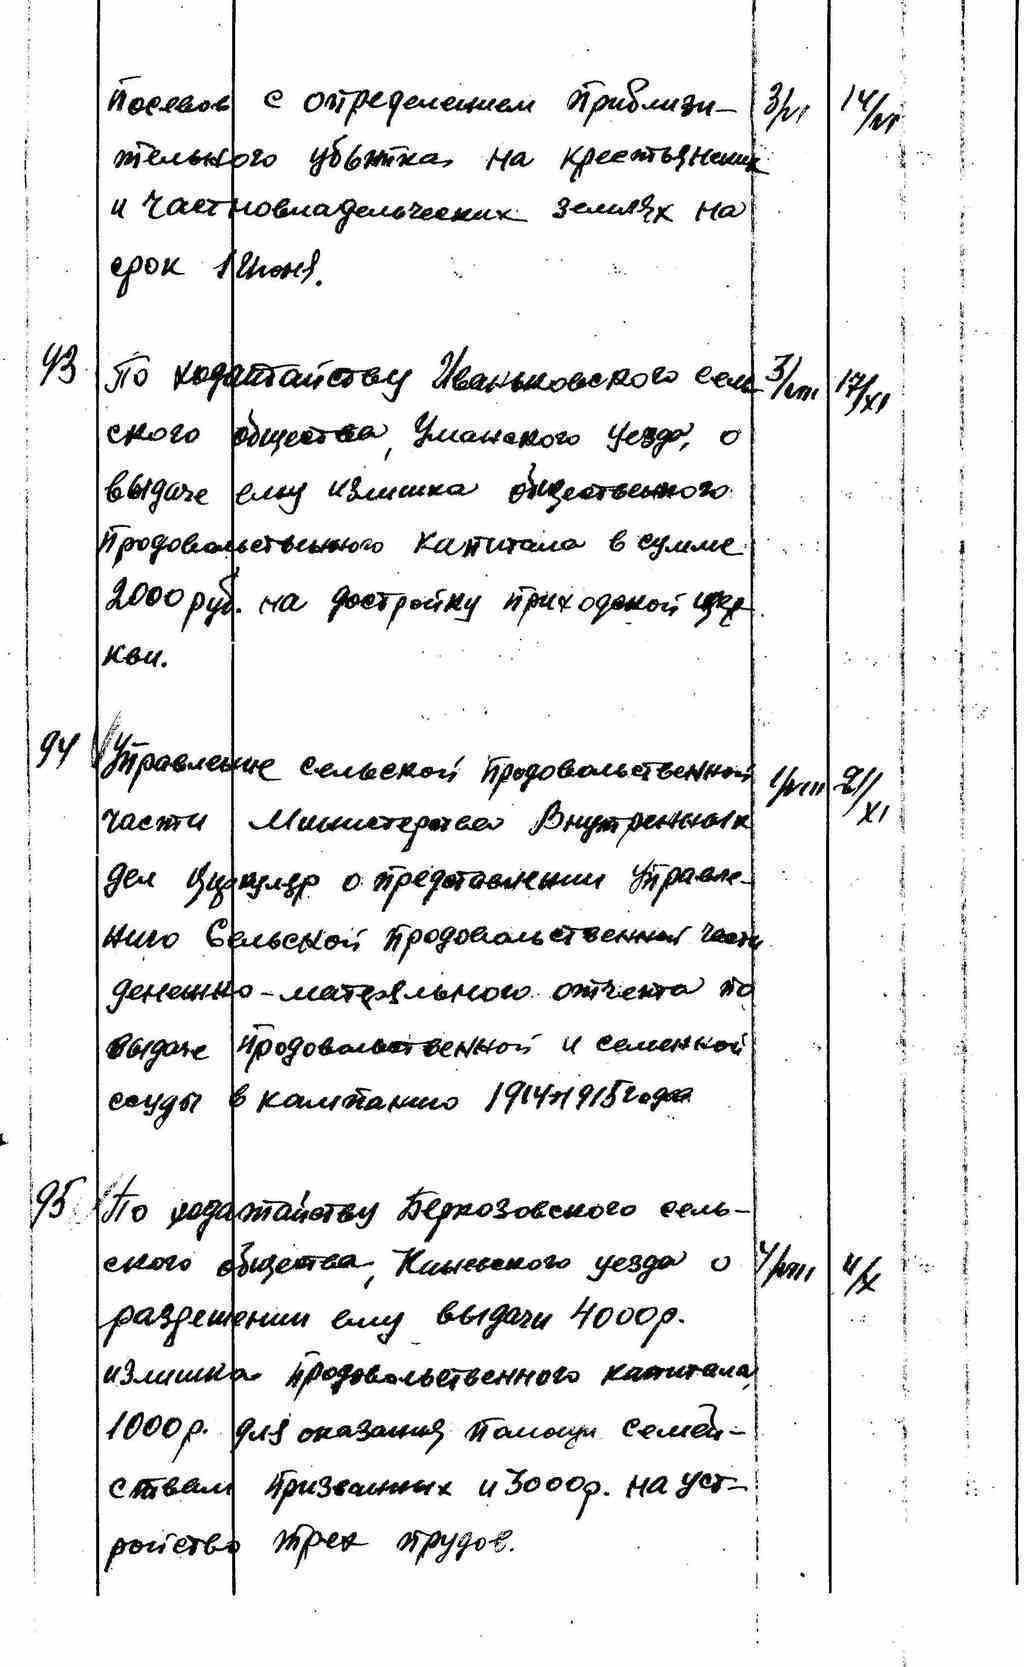 посевов с определением приблизи- 3/VI 14/VI
тельного убытка на крестьянских
и частновладельческих землях на
срок 1 Июня.
93 По ходатайству Иваньковского сель- 3/VIII 17/XI
ского общества, Уманского уезда, о
выдаче ему излишка общественного
продовольственного капитала в сумме
2000 руб. на достройку приходской цер
кви.
94 Управление сельской продовольственной 1/VIII 21/XI
части Министерства Внутренних
дел Циркуляр о представлении Управле-
нию Сельской продовольственной части
денежно-матерьяльного отчета по
выдаче продовольственной и семенной
ссуды в кампанию 1914-1915 года
95 По ходатайству Беркозовского сель-
ского общества, Каневского уезда о 4/VIII 4/X
разрешении ему выдачи 4000 р.
излишка продовольственного капитала,
1000 р. для оказания помощи семей-
ствам призванных и 3000 р. на уст-
ройство трех прудов.